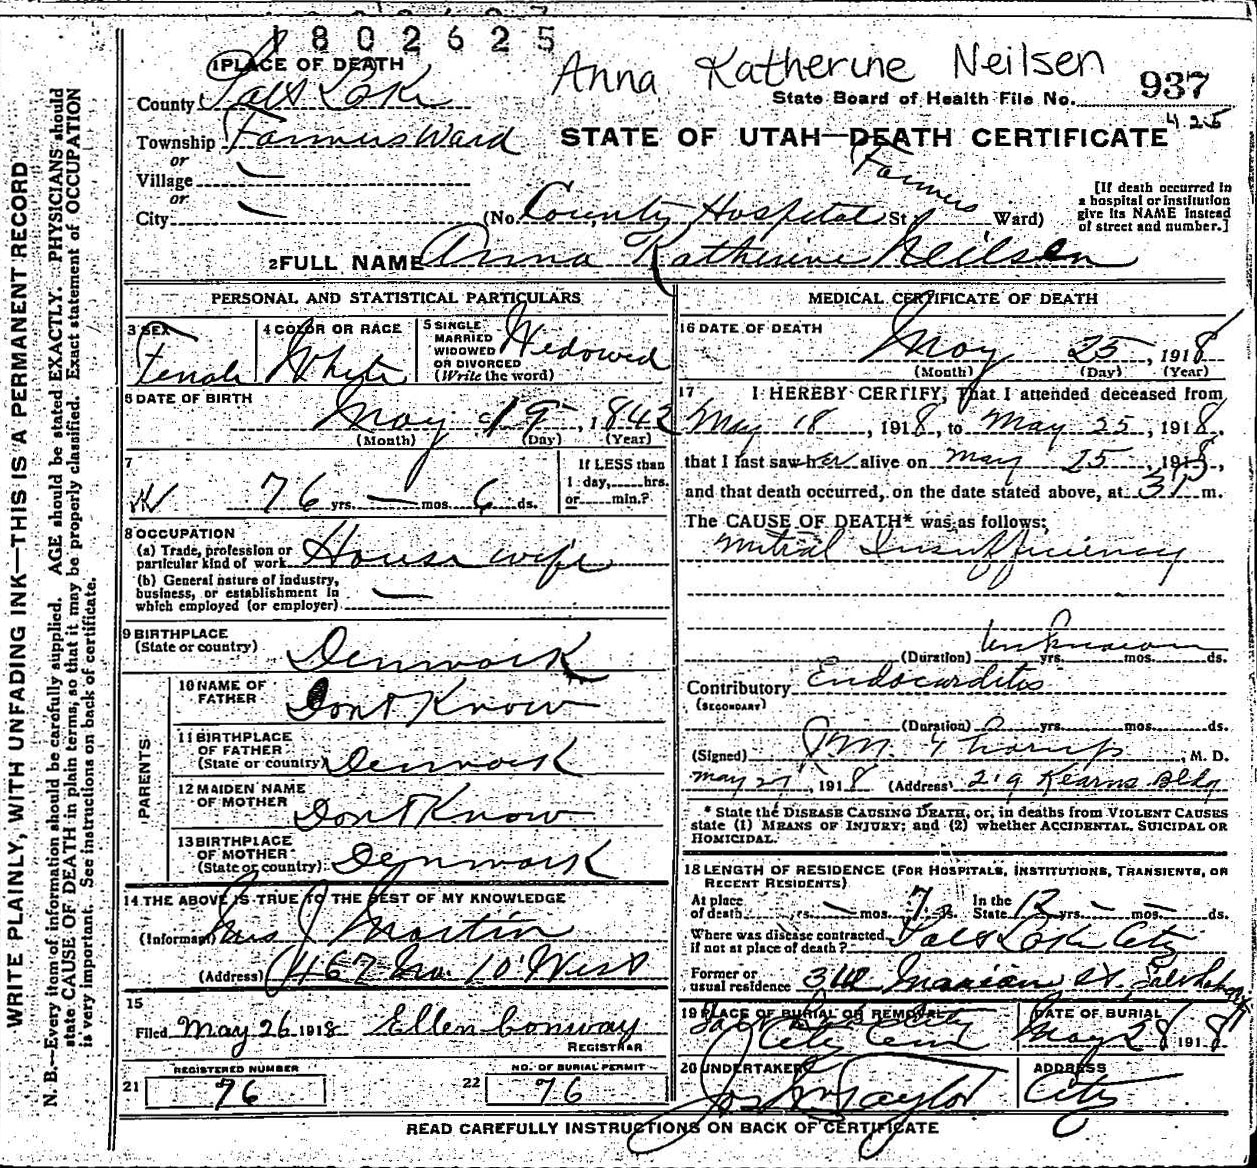 1802625
1 PLACE OF DEATH
Anna Katherine Neilsen
937
County Salt Lake
State Board of Health File No.
425
Township Farmers Ward
STATE OF UTAH—DEATH CERTIFICATE
or
Village —
or
City —
(No. County Hospital St. Farmers Ward)
[If death occurred in
a hospital or institution
give its NAME instead
of street and number.]
2 FULL NAME Anna Katherine Neilsen
PERSONAL AND STATISTICAL PARTICULARS
3 SEX
Female
4 COLOR OR RACE
White
5 SINGLE
MARRIED
WIDOWED
OR DIVORCED
(Write the word)
Widowed
6 DATE OF BIRTH
May 19, 1842
(Month) (Day) (Year)
7
76 yrs. — mos. 6 ds.
If LESS than
1 day, hrs.
or min.?
8 OCCUPATION
(a) Trade, profession or
particular kind of work House wife
(b) General nature of industry,
business, or establishment in
which employed (or employer) —
9 BIRTHPLACE
(State or country) Denmark
PARENTS
10 NAME OF
FATHER Dont Know
11 BIRTHPLACE
OF FATHER
(State or country) Denmark
12 MAIDEN NAME
OF MOTHER Dont Know
13 BIRTHPLACE
OF MOTHER
(State or country) Denmark
14 THE ABOVE IS TRUE TO THE BEST OF MY KNOWLEDGE
(Informant) Mrs J Martin
(Address) 467 No. 10 West
15
Filed May 26 1918 Ellen Conway
REGISTRAR
21 REGISTERED NUMBER
76
22 NO. OF BURIAL PERMIT
76
MEDICAL CERTIFICATE OF DEATH
16 DATE OF DEATH
May 25, 1918
(Month) (Day) (Year)
17 I HEREBY CERTIFY, That I attended deceased from
May 18, 1918, to May 25, 1918,
that I last saw her alive on May 25, 1918,
and that death occurred, on the date stated above, at 3 P m.
The CAUSE OF DEATH* was as follows:
Mitral Insufficiency
(Duration) Unknown yrs. mos. ds.
Contributory Endocarditis
(SECONDARY)
(Duration) ? yrs. mos. ds.
(Signed) , M. D.
May 27, 1918 (Address) 219 Kearns Bldg
* State the DISEASE CAUSING DEATH, or, in deaths from VIOLENT CAUSES
state (1) MEANS OF INJURY; and (2) whether ACCIDENTAL, SUICIDAL OR
HOMICIDAL.
18 LENGTH OF RESIDENCE (FOR HOSPITALS, INSTITUTIONS, TRANSIENTS, OR
RECENT RESIDENTS)
At place
of death yrs. — mos. 7 ds.
In the
State 12 yrs. — mos. — ds.
Where was disease contracted,
if not at place of death? Salt Lake City
Former or
usual residence Marion St. Salt Lake City
19 PLACE OF BURIAL OR REMOVAL
Salt Lake City
City Cem
DATE OF BURIAL
May 28 1918
20 UNDERTAKER
Jos Wm Taylor
ADDRESS
City
READ CAREFULLY INSTRUCTIONS ON BACK OF CERTIFICATE
WRITE PLAINLY, WITH UNFADING INK—THIS IS A PERMANENT RECORD
N. B.—Every item of information should be carefully supplied. AGE should be stated EXACTLY. PHYSICIANS should
state CAUSE OF DEATH in plain terms, so that it may be properly classified. Exact statement of OCCUPATION
is very important. See instructions on back of certificate.